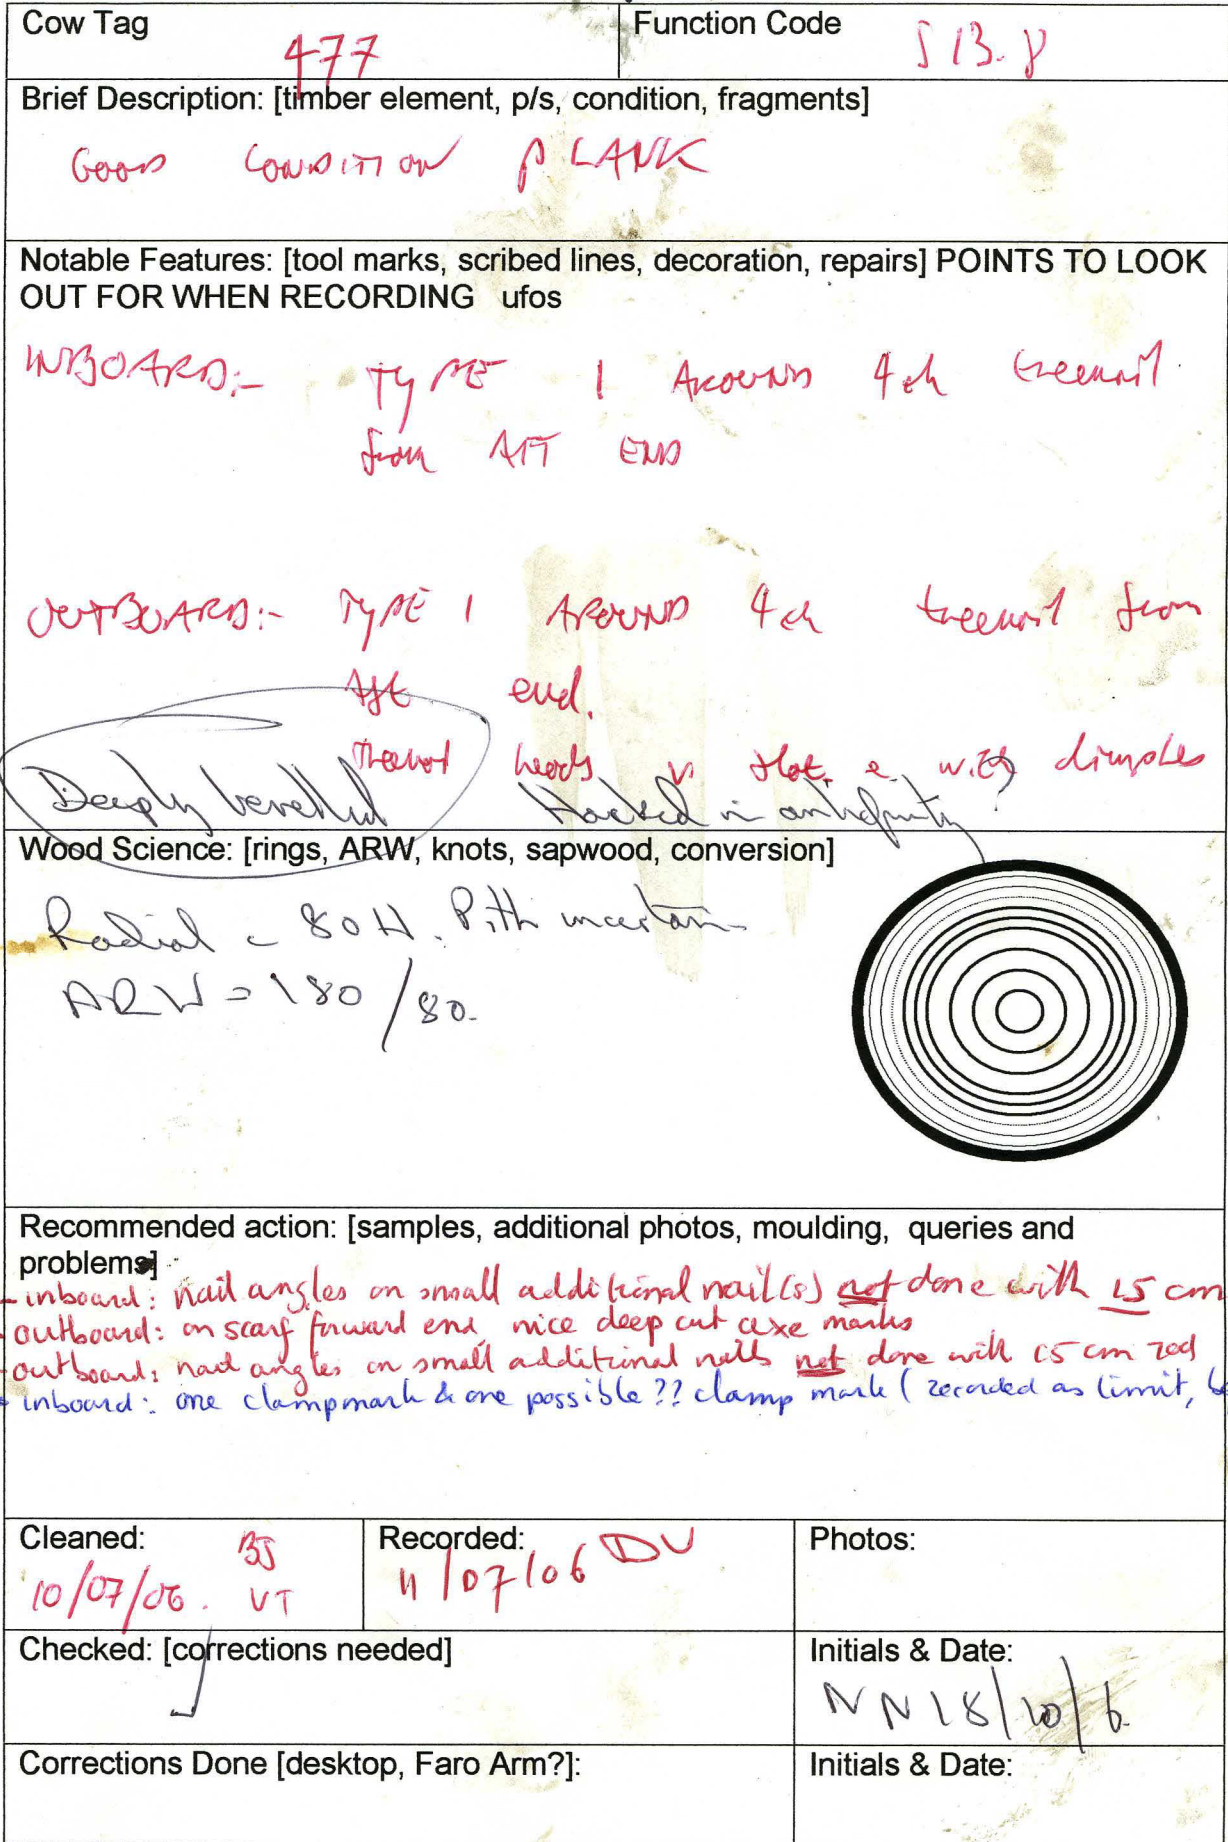 Cow Tag 477
Function Code S13.8
Brief Description: [timber element, p/s, condition, fragments]
GOOD CONDITION PLANK
Notable Features: [tool marks, scribed lines, decoration, repairs] POINTS TO LOOK
OUT FOR WHEN RECORDING ufos
INBOARD:- TYPE 1 AROUND 4th treenail
from AFT END
OUTBOARD:- TYPE 1 AROUND 4th treenail from
Aft end.
Treenail heads with dimples
Deeply bevelled
in antiquity?
Wood Science: [rings, ARW, knots, sapwood, conversion]
Radial c 80 H. Pith uncertain
ARW = 180/80.
Recommended action: [samples, additional photos, moulding, queries and
problems]
- inboard: nail angles on small additional nail(s) not done with 15 cm
- outboard: on scarf forward end, nice deep cut axe marks
- outboard: nail angles on small additional nails not done with 15 cm rod
- inboard: one clampmark & one possible ?? clamp mark (recorded as limit,
Cleaned: BJ
10/07/06. VT
Recorded: DV
11/07/06
Photos:
Checked: [corrections needed]
Initials & Date:
NN 18/10/6
Corrections Done [desktop, Faro Arm?]:
Initials & Date: